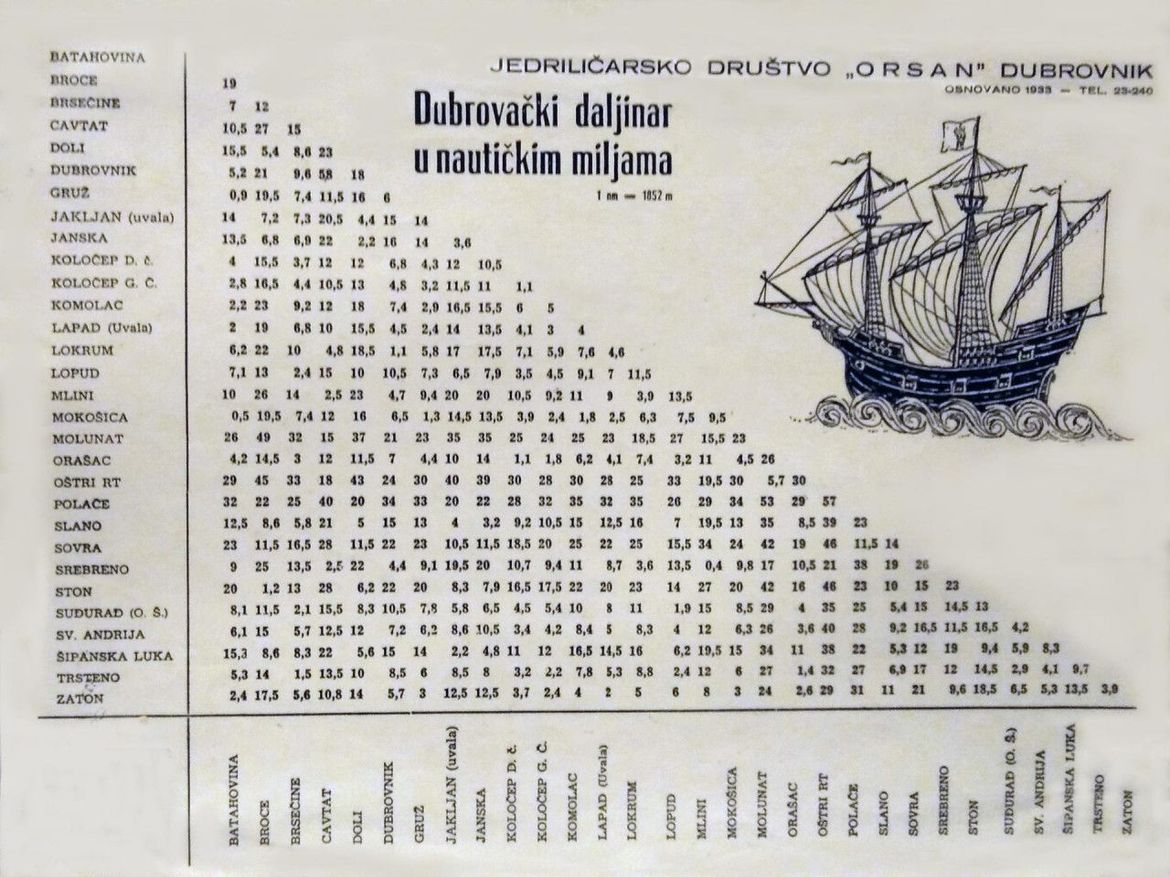 JEDRILIČARSKO DRUŠTVO „ORSAN” DUBROVNIK
OSNOVANO 1933 — TEL. 23-240
Dubrovački daljinar
u nautičkim miljama
1 nm — 1852 m
BATAHOVINA
BROCE 19
BRSEČINE 7 12
CAVTAT 10,5 27 15
DOLI 15,5 5,4 8,6 23
DUBROVNIK 5,2 21 9,6 5,8 18
GRUŽ 0,9 19,5 7,4 11,5 16 6
JAKLJAN (uvala) 14 7,2 7,3 20,5 4,4 15 14
JANSKA 13,5 6,8 6,9 22 2,2 16 14 3,6
KOLOČEP D. č. 4 15,5 3,7 12 12 6,8 4,3 12 10,5
KOLOČEP G. Č. 2,8 16,5 4,4 10,5 13 4,8 3,2 11,5 11 1,1
KOMOLAC 2,2 23 9,2 12 18 7,4 2,9 16,5 15,5 6 5
LAPAD (Uvala) 2 19 6,8 10 15,5 4,5 2,4 14 13,5 4,1 3 4
LOKRUM 6,2 22 10 4,8 18,5 1,1 5,8 17 17,5 7,1 5,9 7,6 4,6
LOPUD 7,1 13 2,4 15 10 10,5 7,3 6,5 7,9 3,5 4,5 9,1 7 11,5
MLINI 10 26 14 2,5 23 4,7 9,4 20 20 10,5 9,2 11 9 3,9 13,5
MOKOŠICA 0,5 19,5 7,4 12 16 6,5 1,3 14,5 13,5 3,9 2,4 1,8 2,5 6,3 7,5 9,5
MOLUNAT 26 49 32 15 37 21 23 35 35 25 24 25 23 18,5 27 15,5 23
ORAŠAC 4,2 14,5 3 12 11,5 7 4,4 10 14 1,1 1,8 6,2 4,1 7,4 3,2 11 4,5 26
OŠTRI RT 29 45 33 18 43 24 30 40 39 30 28 30 28 25 33 19,5 30 5,7 30
POLAČE 32 22 25 40 20 34 33 20 22 28 32 35 32 35 26 29 34 53 29 57
SLANO 12,5 8,6 5,8 21 5 15 13 4 3,2 9,2 10,5 15 12,5 16 7 19,5 13 35 8,5 39 23
SOVRA 23 11,5 16,5 28 11,5 22 23 10,5 11,5 18,5 20 25 22 25 15,5 34 24 42 19 46 11,5 14
SREBRENO 9 25 13,5 2,5 22 4,4 9,1 19,5 20 10,7 9,4 11 8,7 3,6 13,5 0,4 9,8 17 10,5 21 38 19 26
STON 20 1,2 13 28 6,2 22 20 8,3 7,9 16,5 17,5 22 20 23 14 27 20 42 16 46 23 10 15 23
SUĐURAĐ (O. Š.) 8,1 11,5 2,1 15,5 8,3 10,5 7,8 5,8 6,5 4,5 5,4 10 8 11 1,9 15 8,5 29 4 35 25 5,4 15 14,5 13
SV. ANDRIJA 6,1 15 5,7 12,5 12 7,2 6,2 8,6 10,5 3,4 4,2 8,4 5 8,3 4 12 6,3 26 3,6 40 28 9,2 16,5 11,5 16,5 4,2
ŠIPANSKA LUKA 15,3 8,6 8,3 22 5,6 15 14 2,2 4,8 11 12 16,5 14,5 16 6,2 19,5 15 34 11 38 22 5,3 12 19 9,4 5,9 8,3
TRSTENO 5,3 14 1,5 13,5 10 8,5 6 8,5 8 3,2 2,2 7,8 5,3 8,8 2,4 12 6 27 1,4 32 27 6,9 17 12 14,5 2,9 4,1 9,7
ZATON 2,4 17,5 5,6 10,8 14 5,7 3 12,5 12,5 3,7 2,4 4 2 5 6 8 3 24 2,6 29 31 11 21 9,6 18,5 6,5 5,3 13,5 3,9
BATAHOVINA
BROCE
BRSEČINE
CAVTAT
DOLI
DUBROVNIK
GRUŽ
JAKLJAN (uvala)
JANSKA
KOLOČEP D. č.
KOLOČEP G. Č.
KOMOLAC
LAPAD (Uvala)
LOKRUM
LOPUD
MLINI
MOKOŠICA
MOLUNAT
ORAŠAC
OŠTRI RT
POLAČE
SLANO
SOVRA
SREBRENO
STON
SUĐURAĐ (O. Š.)
SV. ANDRIJA
ŠIPANSKA LUKA
TRSTENO
ZATON